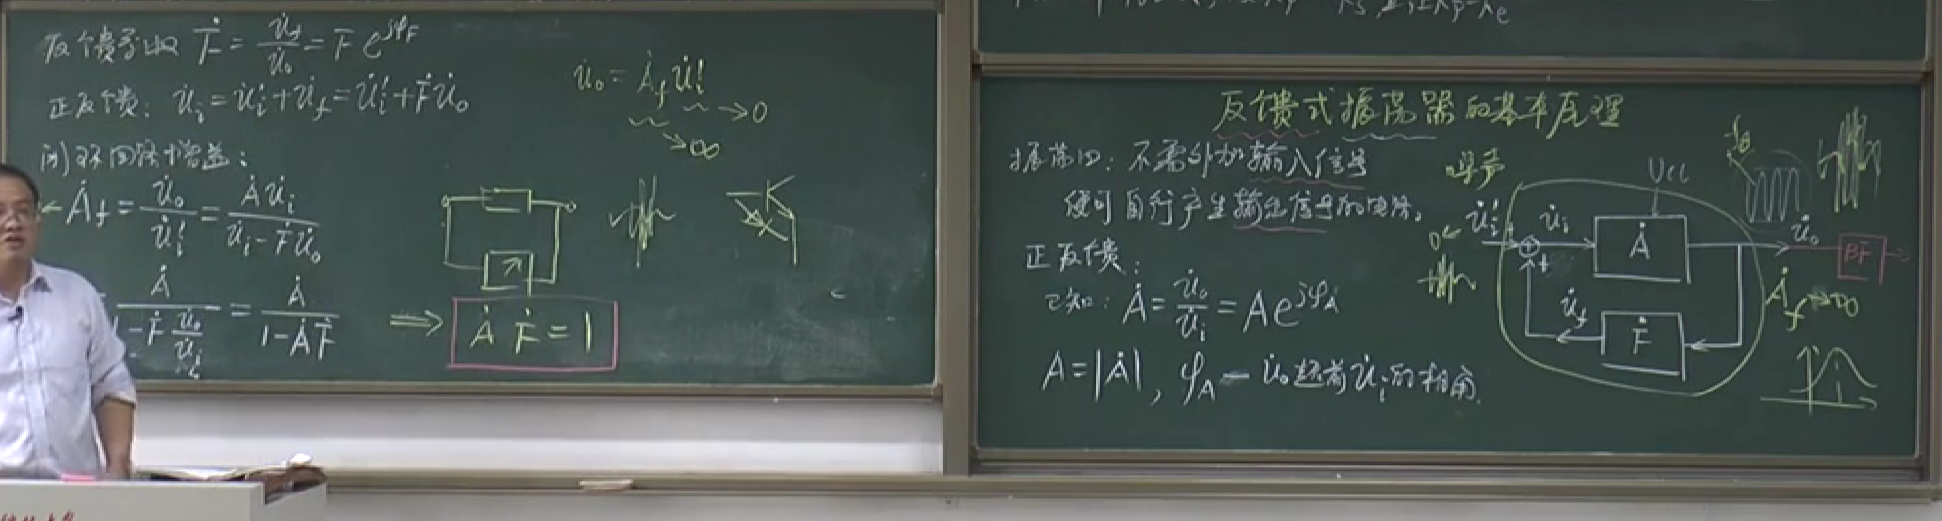 反馈系数 Ḟ = u̇f/u̇o = F e^{jφF}
正反馈: u̇i = u̇i' + u̇f = u̇i' + Ḟu̇o
闭环回路增益:
Ȧf = u̇o/u̇i' = Ȧu̇i/(u̇i - Ḟu̇o)
Ȧ/(1 - Ḟ u̇o/u̇i) = Ȧ/(1 - ȦḞ)
⇒ ȦḞ = 1
u̇o = Ȧf u̇i'
→0
→∞
反馈式振荡器的基本原理
振荡器: 不需外加输入信号
便可自行产生输出信号的电路。
正反馈:
已知: Ȧ = u̇o/u̇i = A e^{jφA}
A = |Ȧ|, φA — u̇o超前u̇i的相角.
噪声
0← u̇i'
u̇i
Ȧ
Ucc
u̇o
BF
+
u̇f
Ḟ
Ȧf→∞